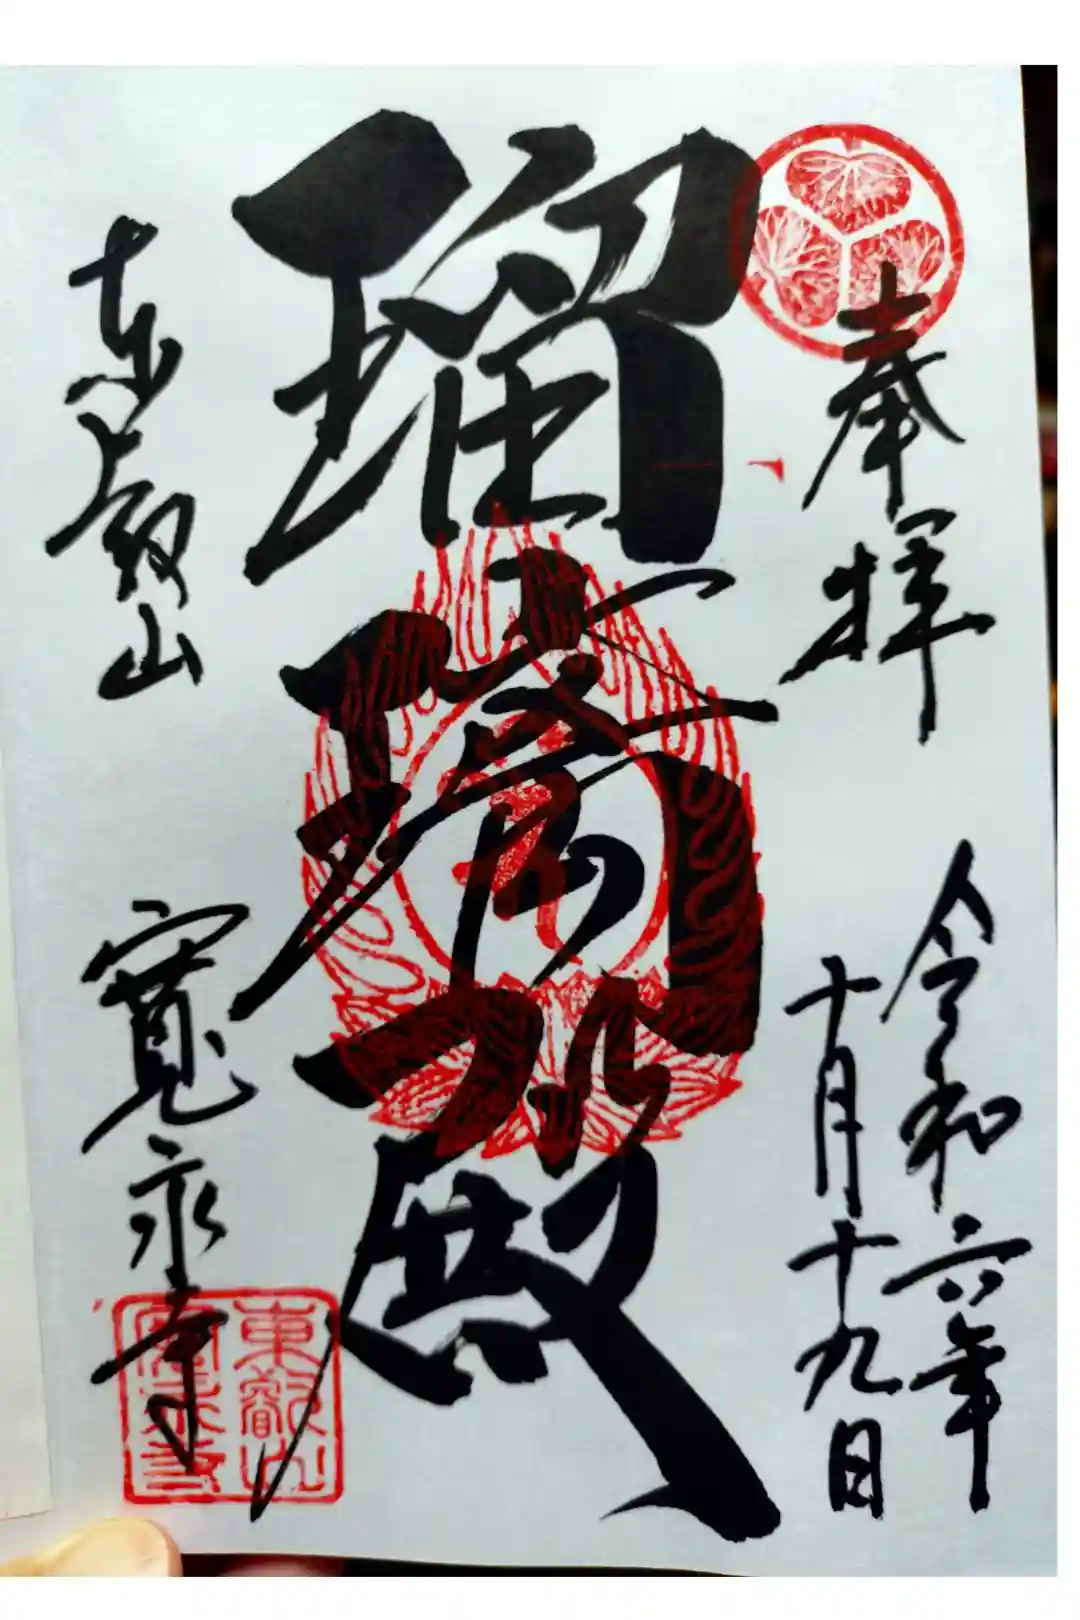 奉拝
令和六年
十月十九日
瑠璃殿
東叡山
寛永寺
東叡山
寛永寺